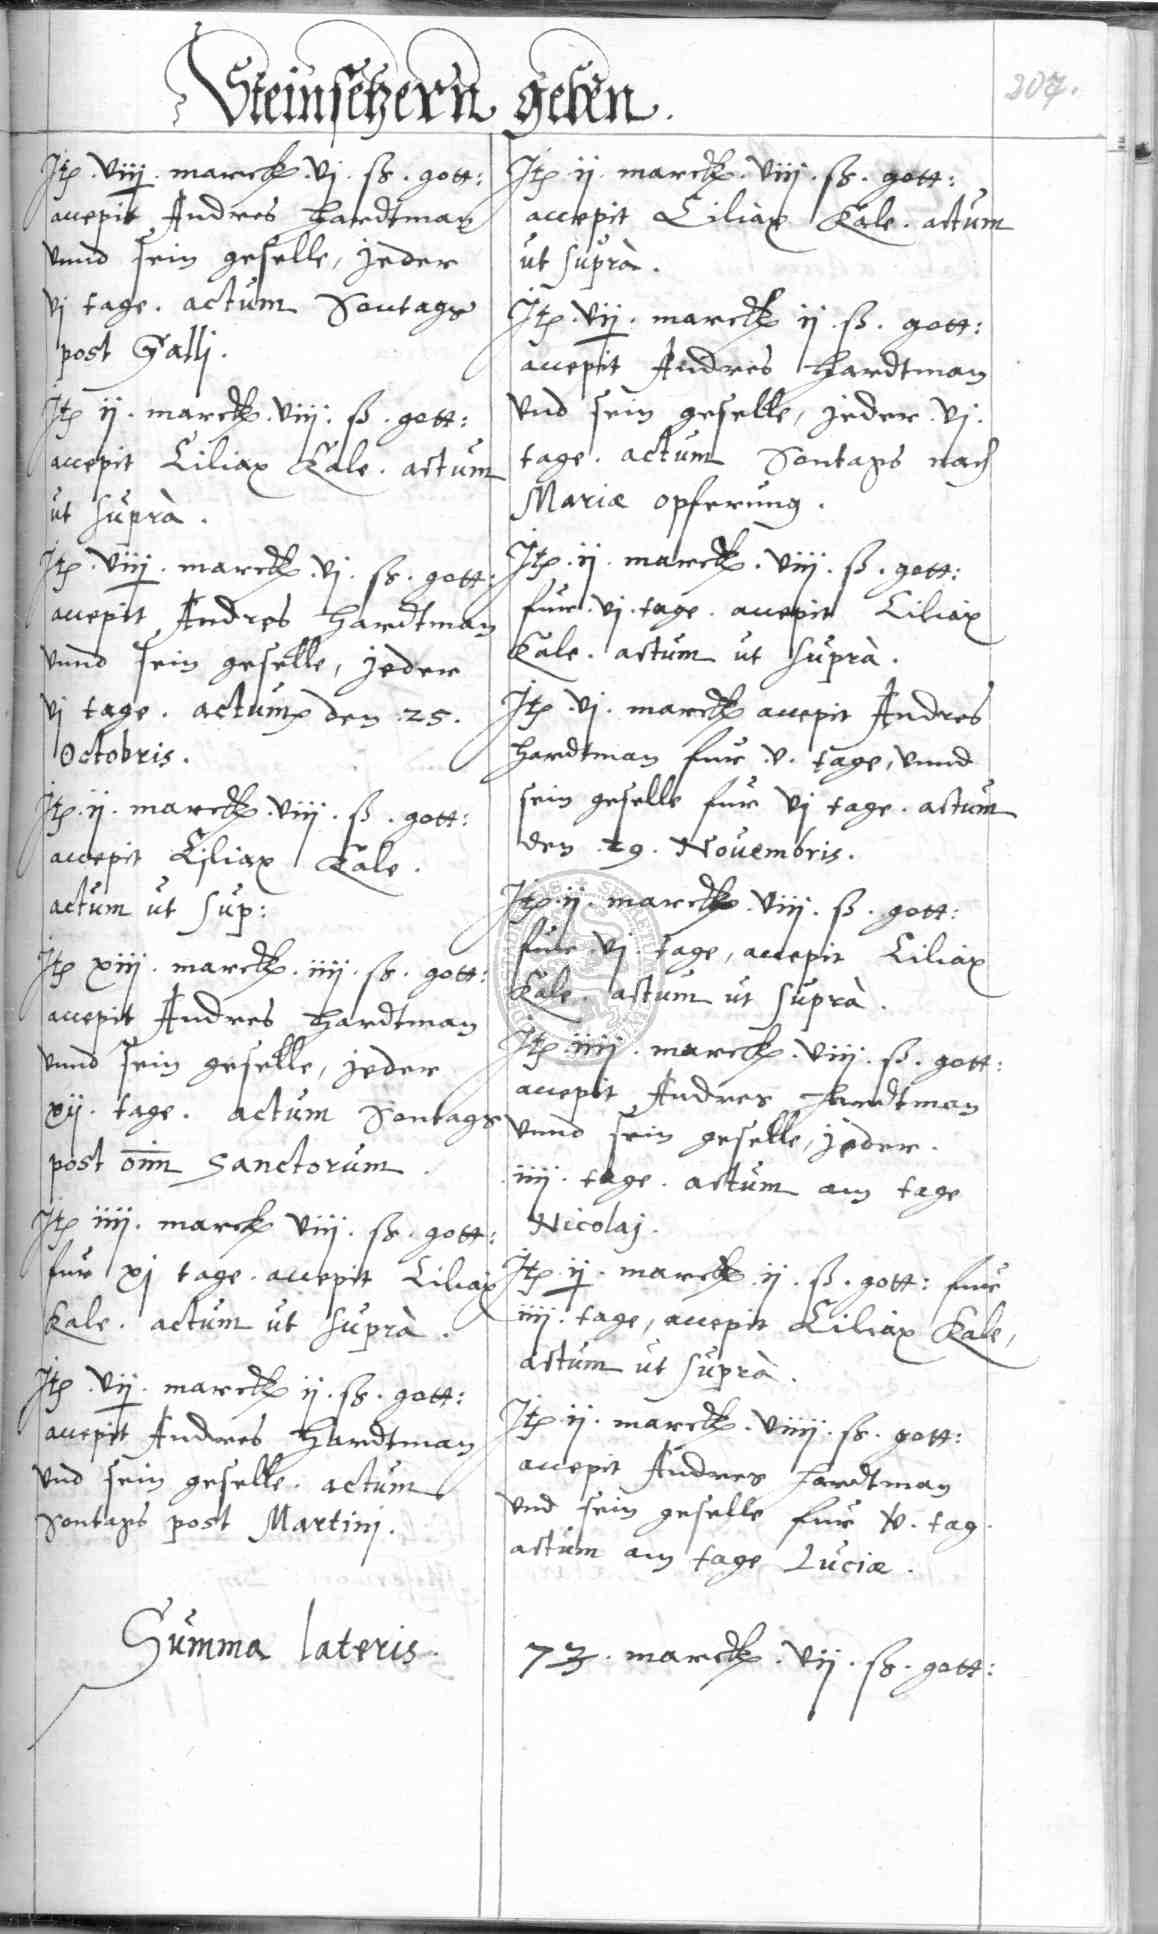 Steinsetzern geben.
207.
Itē viij marck vj ß gott:
accepit Andres Hardtman
vnnd sein geselle, jeder
vj tage. actum Sontags
post Galli.
Itē ij. marck. viij. ß. gott:
accepit Ciliax Kale. actum
ut suprà.
Itē. viij. marck. vj. ß. gott:
accepit Andres Hardtman
vnnd sein geselle, jeder
vj tage. actum den .25.
Octobris.
Itē. ij. marck. viij. ß. gott:
accepit Ciliax Kale.
actum ut sup:
Itē xiij. marck. iiij. ß. gott:
accepit Andres Hardtman
vnnd sein geselle, jeder
xij. tage. actum Sontags
post oīm Sanctorum.
Itē iiij. marck viij. ß. gott:
fur xj tage. accepit Ciliax
Kale. actum ut suprà.
Itē. vij. marck ij. ß. gott:
accepit Andres Hardtman
vnd sein geselle. actum
Sontags post Martinj.
Itē ij. marck. viij. ß. gott:
accepit Ciliax Kale. actum
ut suprà.
Itē. vij. marck ij. ß. gott:
accepit Andres Hardtman
vnd sein geselle, jeder. vj.
tage. actum Sontags nach
Mariæ opferung.
Itē. ij. marck. viij. ß. gott:
fur. vj. tage. accepit Ciliax
Kale. actum ut suprà.
Itē. vj. marck accepit Andres
Hardtman fur .v. tage, vnnd
sein geselle fur vj tage. actum
den .29. Nouembris.
Itē. ij. marck. viij. ß. gott:
fur. vj. tage, accepit Ciliax
Kale. actum ut suprà.
Itē. iiij. marck. viij. ß. gott:
accepit Andres Hardtman
vnnd sein geselle, jeder.
iiij. tage. actum am tage
Nicolaj.
Itē. ij. marck ij. ß. gott: fur
iiij. tage, accepit Ciliax Kale,
actum ut suprà.
Itē. ij. marck. viiij. ß. gott:
accepit Andres Hardtman
vnd sein geselle fur v. tag.
actum am tage Luciæ.
Summa lateris. 73. marck. vij. ß. gott: